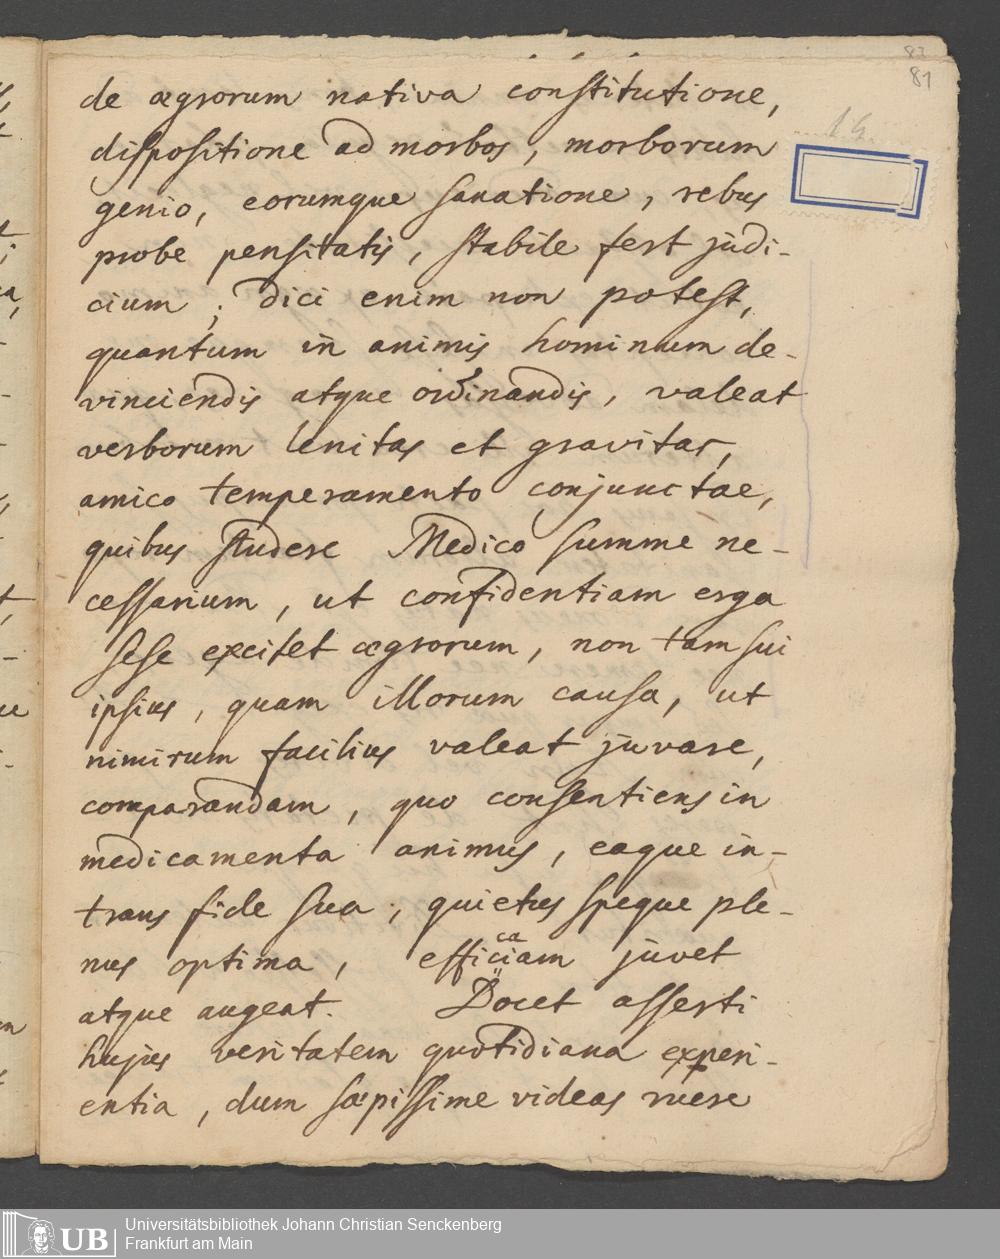 83
81
14.
de ægrorum nativa constitutione,
dispositione ad morbos, morborum
genio, eorumque sanatione, rebus
probe pensitatis, stabile fert judi-
cium; dici enim non potest,
quantum in animis hominum de-
vinciendis atque ordinandis, valeat
verborum lenitas et gravitas,
amico temperamento conjunctae,
quibus studere Medico summe ne-
cessarium, ut confidentiam erga
sese excitet ægrorum, non tam sui
ipsius, quam illorum causa, ut
nimirum facilius valeat juvare,
comparandam, quo consentiens in
medicamenta animus, eaque in-
trans fide sua, quietus speque ple-
nus optima, efficaciam juvet
atque augeat. Docet asserti
hujus veritatem quotidiana experi-
entia, dum sæpissime videas ruere
UB
Universitätsbibliothek Johann Christian Senckenberg
Frankfurt am Main